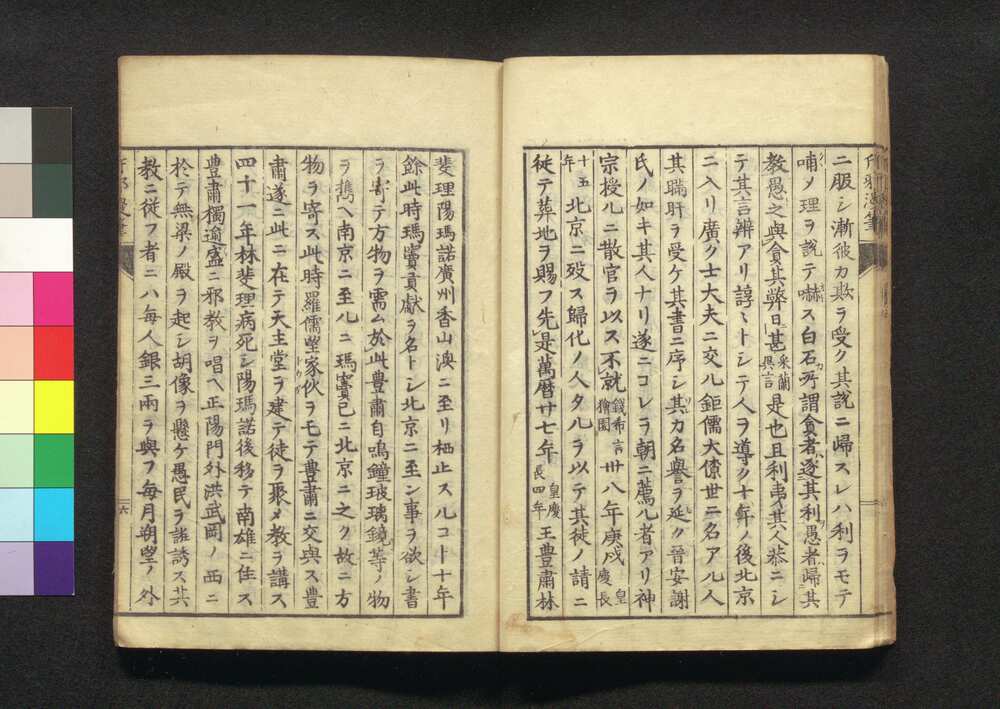 ニ服シ漸彼カ欺ヲ受ク其説ニ歸スレハ利ヲモテ
哺メ理ヲ説テ嚇ス白石所謂貪者遂其利愚者歸其
教愚之與貪其弊日甚采蘭異言是也且利弗其人恭ニシ
テ其言辨アリ諄々トシテ人ヲ導ク十年ノ後北京
ニ入リ廣ク士大夫ニ交ル鉅儒大僚世ニ名アル人
其矙肝ヲ受ケ其書ニ序シ其カ名譽ヲ延ク晉安謝
氏ノ如キ其人ナリ遂ニコレヲ朝ニ薦ル者アリ神
宗授ルニ散官ヲ以ス不就錢希言獪園卅八年庚戌皇慶長
十五年北京ニ歿ス歸化ノ人タルヲ以テ其徒ノ請ニ
徙テ葬地ヲ賜フ先是萬暦廿七年皇慶長四年王豊肅林
斐理陽瑪諾廣州香山澳ニ至リ栖止スルコト十年
餘此時瑪竇貢獻ヲ名トシ北京ニ至ン事ヲ欲シ書
ヲ寄テ方物ヲ需ム於此豊肅自鳴鐘玻璃鏡等ノ物
ヲ携ヘ南京ニ至ルニ瑪竇已ニ北京ニ之ク故ニ方
物ヲ寄ス此時羅儒望家伙ヲモテ豊肅ニ交與ス豊
肅遂ニ此ニ在テ天主堂ヲ建テ徒ヲ聚メ教ヲ講ス
四十一年林斐理病死シ陽瑪諾後移テ南雄ニ住ス
豊肅獨逾盛ニ邪教ヲ唱ヘ正陽門外洪武岡ノ西ニ
於テ無梁ノ殿ヲ起シ胡像ヲ懸ケ愚民ヲ誑誘ス其
教ニ從フ者ニハ毎人銀三兩ヲ與フ毎月朔望ノ外
六